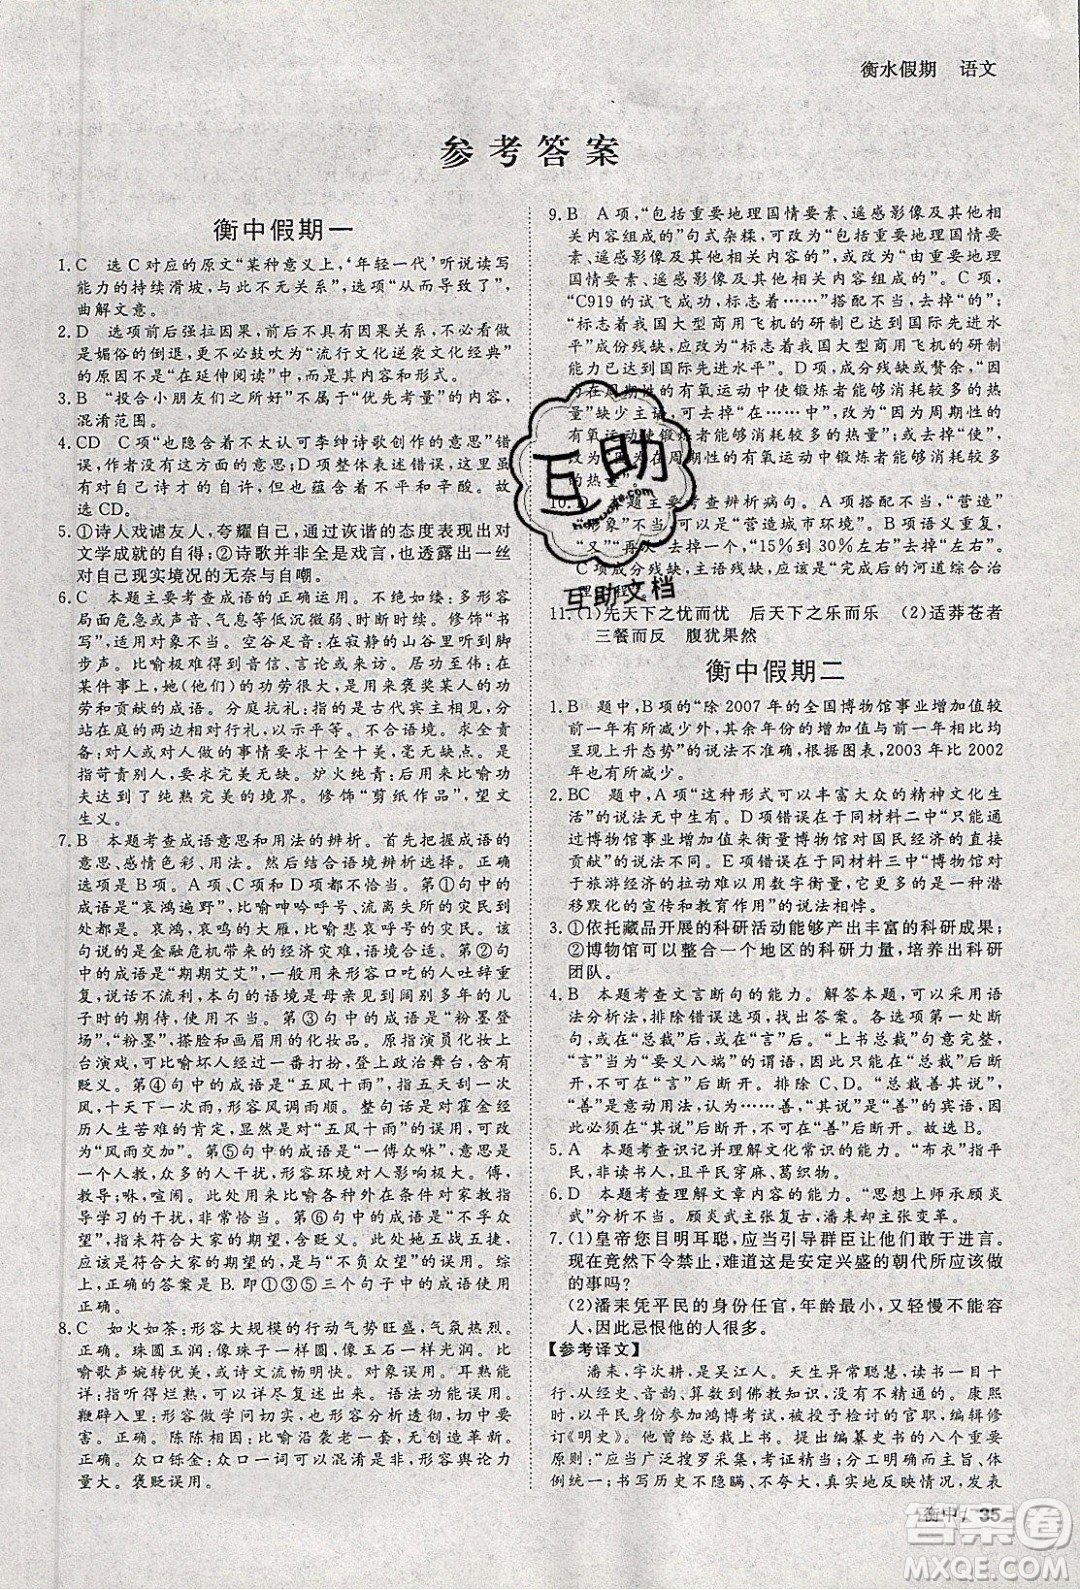 衡水假期　语文
参考答案
衡中假期一
1. C　选C对应的原文“某种意义上,‘年轻一代’听说读写
能力的持续滑坡,也与此不无关系”,选项过于绝对,
曲解文意。
2. D　选项前后强拉因果,前后不具有因果关系。“不必视
为媚俗的倒退,更不必鼓吹为“流行文化逆袭文化经典”
的原因不是“在延伸阅读”,而是其内容和形式。
3. B　“投合小朋友们之所好”不属于“优先考量”的内容,
混淆范围。
4. CD　C项“暗含着不太认可李绅诗歌创作的意思”错
误,作者没有这方面的意思;D项整体表述错误,这句话
对自己诗才的自许,但也蕴含着不平和辛酸。故
选CD。
5. ①诗人戏谑友人,夸耀自己,通过诙谐的态度表现出对
文学成就的自得;②诗歌并非全是戏言,也透露出一丝
对自己现实境况的无奈与自嘲。
6. C　本题主要考查成语的正确运用。不绝如缕:多形容
局面危急或声音、气息等低沉微弱、时断时续。修饰“书
写”,不当。空谷足音:在寂静的山谷里听到人的脚
步声。比喻极难得到音信、言论或来访。居功至伟:在
某件事上,她(他们)的功劳很大,是褒奖某人的功劳
和贡献的成语。分庭抗礼:指的是古代宾主相见,分
站在庭的两边对行礼,以示平等。不合语境。求全责
备:对人或对人做的事情要求十全十美,毫无缺点。是
指苛责别人,要求完美无缺。炉火纯青:后用来比喻功
夫达到了纯熟完美的境界。修饰“剪纸作品”,望文
生义。
7. B　本题考查成语意思和用法的辨析。首先把握成语的
意思、感情色彩、用法。然后结合语境辨析选择。正确
选项是B项。A、C和D项都不恰当。第①句中的成
语是“哀鸿遍野”,比喻呻吟呼号、流离失所的灾民到
处都是。哀鸿,哀鸣的大雁,比喻悲哀呼号的灾民。该
句说的是金融危机带来的经济灾难,语境合适。第②句
中的成语是“期期艾艾”,用来形容口吃的人吐辞重
复,说话不流利,本句的语境是母亲渴盼离别多年的儿
子时的期待,使用不当。第③句中的成语是“粉墨登
场”,“粉墨”,搽脸和画眉用的化妆品。原指演员化妆上
台演戏,可比喻坏人经过一番打扮,登上政治舞台,含有
贬义。第④句中的成语是“五风十雨”,五天刮一次
风,十天下一次雨,形容风调雨顺。整句话是对霍金经
历人生苦难的肯定,显然是对“五风十雨”的误用,可为
“风雨交加”。第⑤句中的成语是“一傅众咻”,一人教
之,众人扰之,众多的人干扰,指形容环境对人影响很
大。咻:喧闹。此处使用恰当,强调外因对家教家长指
导学习的干扰,非常恰当。第⑥句中的成语是“不孚众
望”,指未符合大家的期望,紧承上句,她五战五捷,应
是符合大家的期望,为“不负众望”的误用。综
上,正确的答案是B.即①③⑤三个句子中的成语使用
正确。
8. C　如火如荼:形容大规模的行动气势旺盛,气氛热烈。
正确。珠圆玉润:像珠子一样圆,像玉石一样光润。比
喻歌声婉转优美,或诗文流畅明快。搭配不当。耳熟能
详:指听得烂熟,可以详尽叙述。语法功能误用。
鞭辟入里:形容作学问切实。也形容分析透彻,切中要
害。正确。陈陈相因:比喻沿袭老一套,无创造革新。
正确。众口铄金:众人的言论可以混淆是非,形容舆论
力量大。褒贬误用。
9. B　A项,“包括重要地理国情要素、遥感影像及其相
关内容组成的”句式杂糅,可改为“包括重要地理国情
要素、遥感影像及其相关内容”或改为“由重要地理国情
要素、遥感影像及其相关内容组成的”。C项,
“C919的试飞成功,标志着……”搭配不当,去掉“的”,
“标志着我国大型商用飞机的研制已达到国际先进水
平”成分残缺,应改为“标志着我国大型商用飞机的研
制已达到国际先进水平”。D项,成分残缺或赘余,“因
为周期性的有氧运动中能使锻炼者能够消耗较多的热
量”缺少主语,可去掉“在……中”,改为“因为周期性的
有氧运动能够使锻炼者能够消耗较多的热量”或去掉“使”,
改为“在周期性的有氧运动中锻炼者能够消耗较多
的热量”。
10. D　本题主要考查辨析病句。A项搭配不当,“营造”
“形象”不当,可以改为“营造城市环境”。B项语义重复,
“又”“再次”去掉一个,“15%到30%左右”去掉“左右”。
C项成分残缺,主语残缺,应是“完成后的河道综合治
理工程”。
11. (1)先天下之忧而忧　后天下之乐而乐　(2)适莽苍者
三餐而反　腹犹果然
衡中假期二
1. B　题中,B项的“除2007年的全国博物馆事业增加值较
前一年有所减少外,其余年份的增加值与前一年相比均
呈现上升态势”的说法不准确,根据图表,2003年比2002
年也有所减少。
2. BC　题中,A项“这种形式可以丰富大众的精神文化生
活”无中生有。D项错误在于同材料二中“只能通
过博物馆事业增加值来衡量博物馆对国民经济的直接
贡献”的说法不同。E项错误在于同材料三中“博物馆对
于旅游经济的拉动难以用数字衡量,更多的是一种潜
移默化的宣传和教育的作用”的说法相悖。
3. ①依托藏品开展的科研活动能够产出丰富的科研成果;
②博物馆可以整合一个地区的科研力量,培养出科研
团队。
4. B　本题考查文言断句的能力。解答本题,可以采用语
法分析法,排除错误选项,找出答案。各选项第一处断
句,在“总裁”后断开,“上书总裁”句意完整,应断开;
“言”为“要义八端”的谓语,因此只能在“总裁”后断
开,不能在“言”后断开。排除C、D。“总裁善其说”,
“善”是意动用法,认为……善,“其说”是“善”的宾语,因
此必须在“其说”后断开,不能在“善”后断开,故选B。
5. A　本题考查识记并理解文化常识的能力。“布衣”指平
民,非读书人,是麻、葛织物。
6. D　本题考查理解文章内容的能力。“思想上师承顾炎
武”分析不当。顾炎武主张复古,潘耒却主张变革。
7. (1)皇帝您目明耳聪,应当引导群臣让他们进言。
因此竟然下令禁止,难道这是安定兴盛的朝代所应该做
的事吗?
(2)潘耒凭平民的身份任官,年龄最小,又轻慢不能容
人,因此忌恨他的人很多。
【参考译文】
潘耒,字次耕,是吴江人。天生异常聪慧,读书一目十
行,从经史、音韵、算数到佛教知识,没有不通晓的。康熙
时,以平民身份参加鸿博考试,被授予检讨的官职,编辑修
订《明史》。他曾给总裁上书,提出编纂史书的八个大的
原则:“应该广泛搜罗采集,考证精当;分工明确而主旨、体
例统一;书写历史不隐瞒、不夸大,真实地反映情况,发表
衡中　35
互助
互助文档
答案圈
MXQE.COM